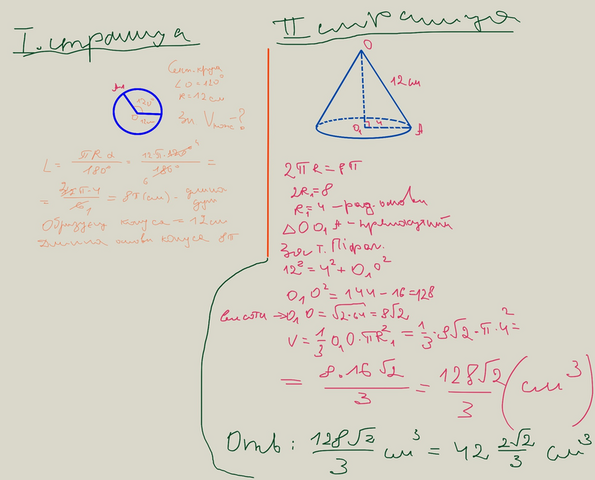 I. страница
Сект. круга
∠O = 120°
R = 12 см
Vконус - ?
120°
O
12 см
L = πRα/180° = 12π·120°/180° =
= 8π (см) - длина дуги
Образующ конуса = 12 см
Длинна основи конуса 8π
II страница
O
12 см
O₁ 4 A
2πR = 8π
2R₁ = 8
R₁ = 4 - рад. основи
△OO₁A - прямокутний
За т. Піфаг.
12² = 4² + O₁O²
O₁O² = 144 - 16 = 128
висота → O₁O = √2·64 = 8√2
V = 1/3 O₁O·πR₁² = 1/3·8√2·π·4² =
= 8·16√2/3 = 128√2/3 (см³)
Отв: 128√2/3 см³ = 42 2√2/3 см³